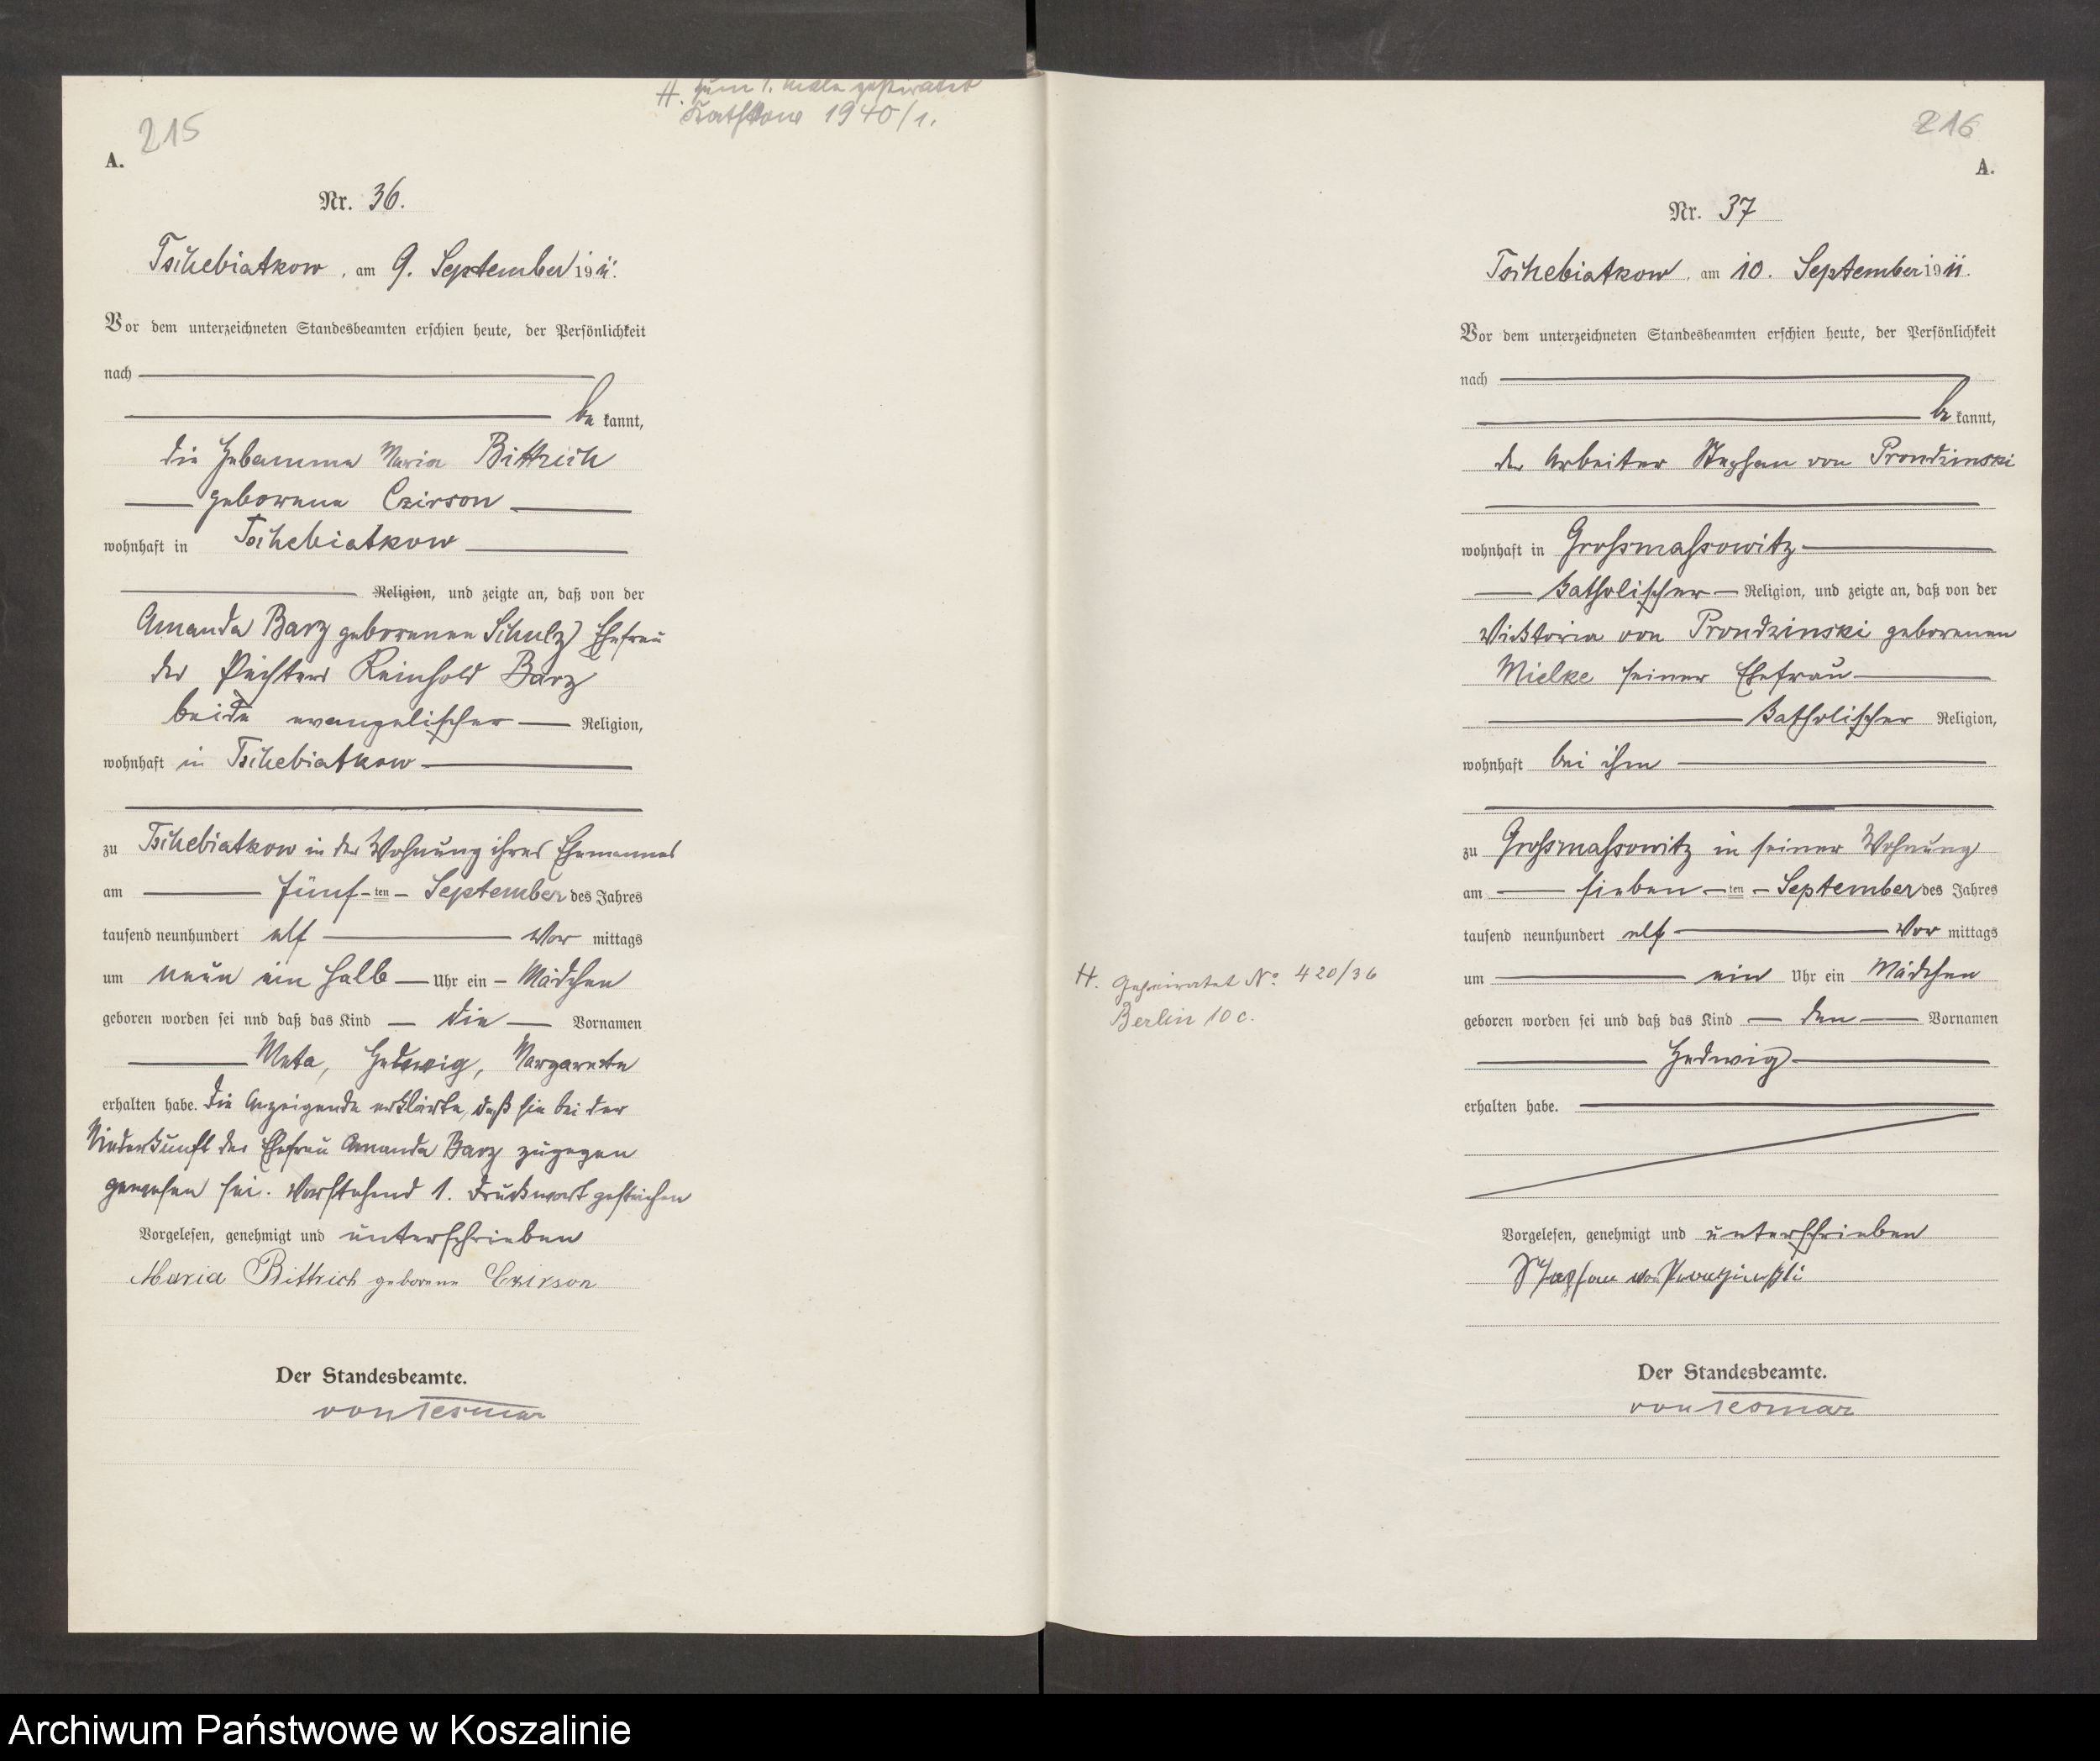 215
H. zum 1. Male geheiratet
1940/1.
A.
Nr. 36.
Tschebiatkow, am 9. September 1911.
Vor dem unterzeichneten Standesbeamten erschien heute, der Persönlichkeit
nach
be kannt,
die Hebamme Maria Bittrich
geborene Czirson
wohnhaft in Tschebiatkow
Religion, und zeigte an, daß von der
Amanda Barz geborenen Schulz, Ehefrau
des Pächters Reinhold Barz
beide evangelischer Religion,
wohnhaft in Tschebiatkow
zu Tschebiatkow in der Wohnung ihres Ehemannes
am fünf ten September des Jahres
tausend neunhundert elf Vor mittags
um neun ein halb Uhr ein Mädchen
geboren worden sei und daß das Kind die Vornamen
Meta, Hedwig, Margarete
erhalten habe. Die Anzeigende erklärte, daß sie bei der
Niederkunft der Ehefrau Amanda Barz zugegen
gewesen sei. Vorstehend 1. Druckwort gestrichen
Vorgelesen, genehmigt und unterschrieben
Maria Bittrich geborene Czirson
Der Standesbeamte.
von Tesmar
216
A.
Nr. 37
Tschebiatkow, am 10. September 1911.
Vor dem unterzeichneten Standesbeamten erschien heute, der Persönlichkeit
nach
be kannt,
der Arbeiter Stephan von Prondzinski
wohnhaft in Grossmassowitz
katholischer Religion, und zeigte an, daß von der
Wicktoria von Prondzinski geborenen
Mielke seiner Ehefrau
katholischer Religion,
wohnhaft bei ihm
zu Grossmassowitz in seiner Wohnung
am sieben ten September des Jahres
tausend neunhundert elf Vor mittags
um ein Uhr ein Mädchen
geboren worden sei und daß das Kind den Vornamen
Hedwig
erhalten habe.
H. Geheiratet No 420/36
Berlin 10c.
Vorgelesen, genehmigt und unterschrieben
Stephan von Prondzinski
Der Standesbeamte.
von Tesmar
Archiwum Państwowe w Koszalinie